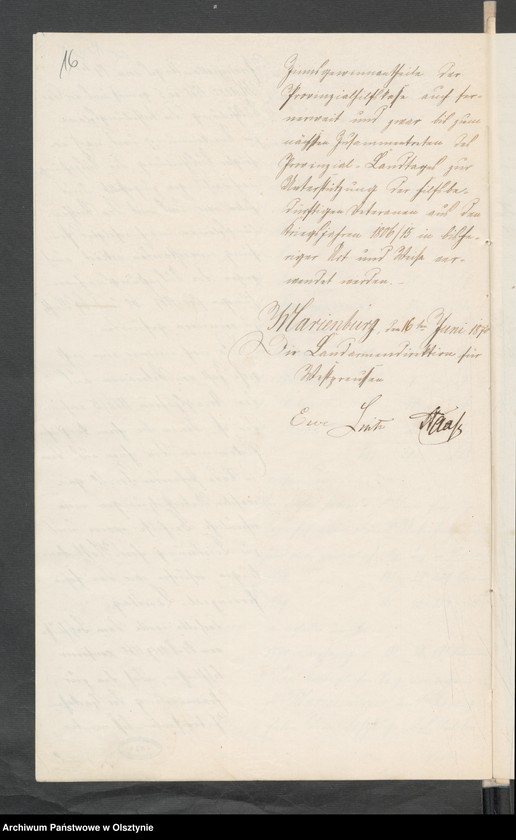 16
Zinsgewinnantheile der
Provinzialhilfskasse auch fer-
nerweit und zwar bis zum
nächsten Zusammentreten des
Provinzial-Landtages zur
Unterstützung der hilfsbe-
dürftigen Veteranen aus den
Kriegsjahren 1806/15 in bishe-
riger Art und Weise ver-
wendet werden.
Marienburg, den 16ten Juni
Die Landarmendirektion für
Westpreußen
Archiwum Państwowe w Olsztynie